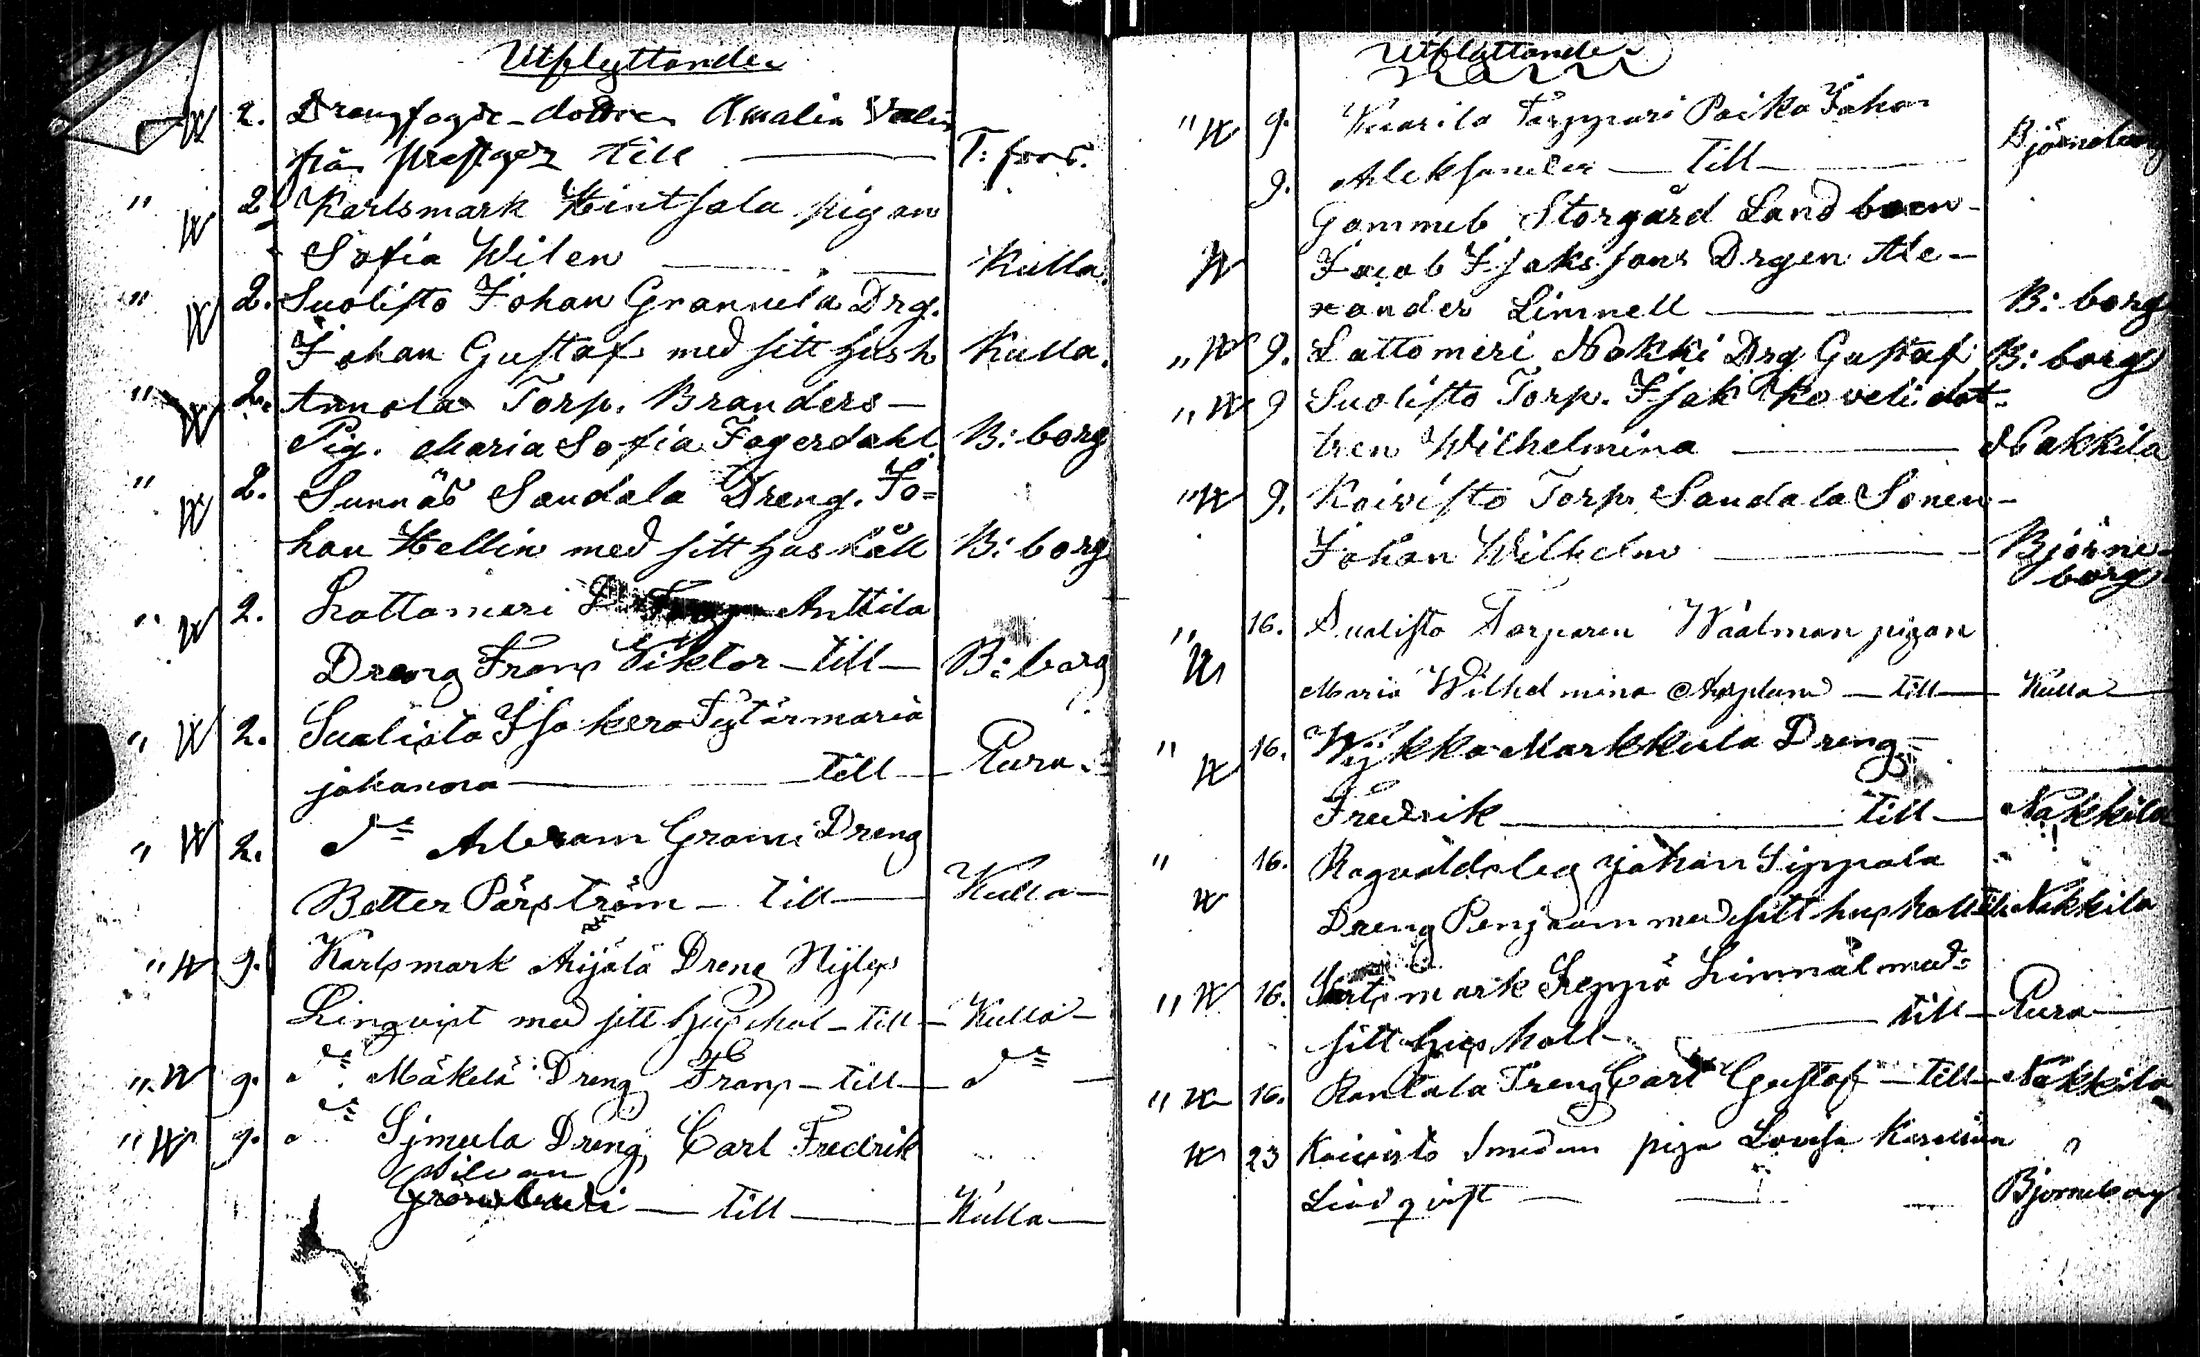 Utflyttande
2. Drengfogde-dottren Amalia
från till T: fors.
" 2. Karlsmark Hintsala pigan
Sofia Wilen Kulla.
" 2. Suolisto Johan Grannela Drg.
Johan Gustaf med sitt hush Kulla.
" 2. Annola Torp. Branders-
Pig. Maria Sofia Fagerdahl B: borg
" 2. Sunnäs Sandala Dreng. Jo=
han Hellin med sitt hushåll B: borg
" 2. Lattomeri Anttila
Dreng Frans Viktor - till - B: borg
" 2. Sualista Isokera Tytär maria
johanna till Eura
" 2. Abram Grani Dreng
Better Pärström - till Kulla
" 9. Karlsmark Äijälä Dreng
Linqvist med sitt - till Kulla
" 9. Mäkelä Dreng Frans - till
" 9. Sjmula Dreng Carl Fredrik
till Kulla
Utflyttande
" 9. Torppari Poika Johan
Aleksander till Björneborg
9. Gammelb Storgård Landboen-
Jacob Isaks sons Drgen Ale-
xander Linnell B: borg
" 9. Lattomeri Nokki Drg Gustaf B: borg
" 9 Suolisto Torp. Isak Koveli dot-
tren Wilhelmina Nakkila
" 9. Koivisto Torp. Sandala Sonen-
Johan Wilhelm Björne-
borg
" 16. Sualisto Torparen Wäälman pigan
Maria Wilhelmina Asplund till Kulla
" 16. Wijkka Markkula Dreng
Fredrik till Nakkila
" 16. Ragvaldsby johan Sippala
Dreng Penjaam med sitt hushall till Nakkila
" 16. Karlsmark Seppä Linnäl med
sitt hushall till Eura
" 16. Rantala Treng Carl Gustaf till Nakkila
23 Koivisto Smedens piga Lovisa
Lindqvist Björneborg